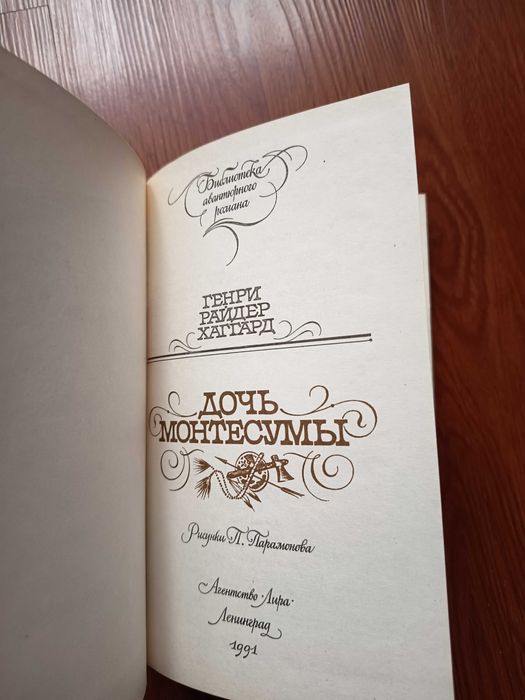 Библиотека
авантюрного
романа
ГЕНРИ
РАЙДЕР
ХАГГАРД
ДОЧЬ
МОНТЕСУМЫ
Рисунки П. Парамонова
Агентство · Лира ·
Ленинград
1991